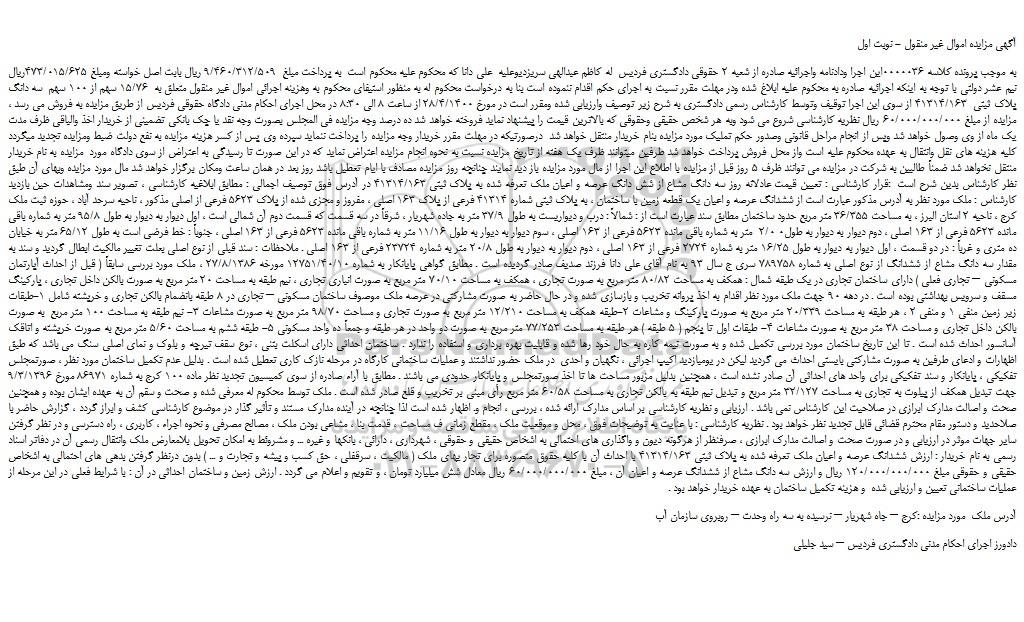 آگهی مزایده اموال غیر منقول – نوبت اول
به موجب پرونده کلاسه 0000036این اجرا ودادنامه واجرائیه صادره از شعبه 2 حقوقی دادگستری فردیس له کاظم عبدالهی سریزدیوعلیه علی دانا که محکوم علیه محکوم است به پرداخت مبلغ 9/460/312/509 ریال بابت اصل خواسته ومبلغ 473/015/625ریال
نیم عشر دولتی با توجه به اینکه اجرائیه صادره به محکوم علیه ابلاغ شده ودر مهلت مقرر نسبت به اجرای حکم اقدام ننموده است بنا به درخواست محکوم له به منظور استیفای محکوم به وهزینه اجرائی اموال غیر منقول متعلق به 15/76 سهم از 100 سهم سه دانگ
پلاک ثبتی 41314/163 از سوی این اجرا توقیف وتوسط کارشناس رسمی دادگستری به شرح زیر توصیف وارزیابی شده ومقرر است در مورخ 28/4/1400 از ساعت 8 الی 8:30 در محل اجرای احکام مدنی دادگاه حقوقی فردیس از طریق مزایده به فروش می رسد ،
مزایده از مبلغ 60/000/000/000 ریال نظریه کارشناسی شروع می شود وبه هر شخص حقیقی وحقوقی که بالاترین قیمت را پیشنهاد نماید فروخته خواهد شد ده درصد وجه مزایده فی المجلس بصورت وجه نقد یا چک بانکی تضمینی از خریدار اخذ والباقی ظرف مدت
یک ماه از وی وصول خواهد شد وپس از انجام مراحل قانونی وصدور حکم تملیک مورد مزایده بنام خریدار منتقل خواهد شد درصورتیکه در مهلت مقرر خریدار وجه مزایده را پرداخت ننماید سپرده وی پس از کسر هزینه مزایده به نفع دولت ضبط ومزایده تجدید میگردد
کلیه هزینه های نقل وانتقال به عهده محکوم علیه است واز محل فروش پرداخت خواهد شد طرفین میتوانند ظرف یک هفته از تاریخ مزایده نسبت به نحوه انجام مزایده اعتراض نماید که در این صورت تا رسیدگی به اعتراض از سوی دادگاه مورد مزایده به نام خریدار
منتقل نخواهد شد ضمنأ طالبین به شرکت در مزایده می توانند ظرف 5 روز قبل از مزایده با اطلاع این اجرا از مال مورد مزایده باز دید نمایند چنانچه روز مزایده مصادف با ایام تعطیل باشد روز بعد در همان ساعت ومکان برگزار خواهد شد مال مورد مزایده وبهای آن طبق
نظر کارشناس بدین شرح است :قرار کارشناسی : تعیین قیمت عادلانه روز سه دانگ مشاع از شش دانگ عرصه و اعیان ملک تعرفه شده به پلاک ثبتی 41314/163 در آدرس فوق توصیف اجمالی : مطابق ابلاغیه کارشناسی ، تصویر سند ومشاهدات حین بازدید
کارشناس : ملک مورد نظر به آدرس مذکور عبارت است از ششدانگ عرصه و اعیان یک قطعه زمین با ساختمان ، به پلاک ثبتی شماره 41314 فرعی از پلاک 163 اصلی ، مفروز و مجزی شده از پلاک 5623 فرعی از اصلی مذکور ، ناحیه سرحد آباد ، حوزه ثبت ملک
کرج ، ناحیه 2 استان البرز ، به مساحت 36/355 متر مربع حدود ساختمان مطابق سند عبارت است از : شمالاً : درب و دیواریست به طول 37/9 متر به جاده شهریار ، شرقاً در سه قسمت که قسمت دوم آن شمالی است ، اول دیوار به دیوار به طول 95/8 متر به شماره باقی
مانده 5623 فرعی از 163 اصلی ، دوم دیوار به دیوار به طول2/00 متر به شماره باقی مانده 5623 فرعی از 163 اصلی ، سوم دیوار به دیوار به طول 11/16 متر به شماره باقی مانده 5623 فرعی از 163 اصلی ، جنوباً : خط فرضی است به طول 65/12 متر به خیابان
ده متری و غرباً : در دو قسمت ، اول دیوار به دیوار به طول 16/25 متر به شماره 2724 فرعی از 163 اصلی ، دوم دیوار به دیوار به طول 20/8 متر به شماره 23724 فرعی از 163 اصلی . ملاحظات : سند قبلی از نوع اصلی بعلت تغییر مالکیت ابطال گردید و سند به
مقدار سه دانگ مشاع از ششدانگ از نوع اصلی به شماره 789758 سری ج سال 93 به نام آقای علی دانا فرزند صدیف صادر گردیده است . مطابق گواهی پایانکار به شماره 12751/40/10 مورخه 27/8/1386 ، ملک مورد بررسی سابقاً ( قبل از احداث آپارتمان
مسکونی – تجاری فعلی ) دارای ساختمان تجاری در یک طبقه شمال : همکف به مساحت 80/82 متر مربع به صورت تجاری ، همکف به مساحت 70/10 متر مربع به صورت انباری تجاری ، نیم طبقه به مساحت 20 متر مربع به صورت بالکن داخل تجاری ، پارکینگ
مسقف و سرویس بهداشتی بوده است . در دهه 90 جهت ملک مورد نظر اقدام به اخذ پروانه تخریب و بازسازی شده و در حال حاضر به صورت مشارکتی در عرصه ملک موصوف ساختمان مسکونی – تجاری در 8 طبقه بانضمام بالکن تجاری و خرپشته شامل 1-طبقات
زیر زمین منفی 1 و منفی 2 ، هر طبقه به مساحت 20/339 متر مربع به صورت پارکینگ و مشاعات 2-طبقه همکف به مساحت 12/210 متر مربع به صورت تجاری و مساحت 98/70 متر مربع به صورت مشاعات 3- نیم طبقه به مساحت 100 متر مربع به صورت
بالکن داخل تجاری و مساحت 38 متر مربع به صورت مشاعات 4- طبقات اول تا پنجم ( 5 طبقه ) هر طبقه به مساحت 77/253 متر مربع به صورت دو واحد در هر طبقه و جمعاً ده واحد مسکونی 5- طبقه ششم به مساحت 5/60 متر مربع به صورت خرپشته و اتاقک
آسانسور احداث شده است . تا این تاریخ ساختمان مورد بررسی تکمیل نشده و به صورت نیمه کاره به حال خود رها شده و قابلیت بهره برداری و استفاده را ندارد . ساختمان احداثی دارای اسکلت بتنی ، نوع سقف تیرچه و بلوک و نمای اصلی سنگ می باشد که طبق
اظهارات و ادعای طرفین به صورت مشارکتی بایستی احداث می گردید لیکن در یومابازدید اکیپ اجرائی ، نگهبان و احدی در ملک حضور نداشتند و عملیات ساختمانی کارگاه در مرحله نازک کاری تعطیل شده است . بدلیل عدم تکمیل ساختمان مورد نظر ، صورتمجلس
تفکیکی ، پایانکار و سند تفکیکی برای واحد های احداثی آن صادر نشده است ، همچنین بدلیل مزبور مساحت ها تا اخذ صورتمجلس و پایانکار حدودی می باشند . مطابق با آراء صادره از سوی کمیسیون تجدید نظر ماده 100 کرج به شماره 86971 مورخ 9/3/1396
جهت تبدیل همکف از پیلوت به تجاری به مساحت 32/127 متر مربع و تبدیل نیم طبقه به بالکن تجاری به مساحت 60/58 متر مربع رأی مبنی بر تخریب و قلع صادر شده است . ملک توسط محکوم له معرفی شده و صحت و سقم آن به عهده ایشان بوده و همچنین
صحت و اصالت مدارک ابرازی در صلاحیت این کارشناس نمی باشد . ارزیابی و نظریه کارشناسی بر اساس مدارک ارائه شده ، بررسی ، انجام و اظهار شده است لذا چنانچه در آینده مدارک مستند و تأثیر گذار در موضوع کارشناسی کشف و ابراز گردد ، گزارش حاضر با
صلاحدید و دستور مقام محترم قضائی قابل تجدید نظر خواهد بود . نظریه کارشناسی : با عنایت به توضیحات فوق ، محل و موقعیت ملک ، مقطع زمانی ف مساحتی ، قدمت بنا ، مشاعی بودن ملک ، مصالح مصرفی و نحوه اجراء ، کاربری ، راه دسترسی و در نظر گرفتن
سایر جهات موثر در ارزیابی و در صورت صحت و اصالت مدارک ابرازی ، صرفنظر از هرگونه دیون و واگذاری های احتمالی به اشخاص حقیقی و حقوقی ، شهرداری ، دارائی ، بانکها و غیره ... و مشروط به امکان تحویل بلامعارض ملک وانتقال رسمی آن در دفاتر اسناد
رسمی به نام خریدار : ارزش ششدانگ عرصه و اعیان ملک تعرفه شده به پلاک ثبتی 41314/163 با احداث آن با کلیه حقوق متصوره برای تجار بهای ملک ( مالکیت ، سرقفلی ، حق کسب و پیشه و تجارت و ... ) بدون درنظر گرفتن بدهی های احتمالی به اشخاص
حقیقی و حقوقی مبلغ 120/000/000/000 ریال و ارزش سه دانگ مشاع از ششدانگ عرصه و اعیان آن ، مبلغ 60/000/000/000 ریال معادل شش میلیارد تومان ، و تقویم و اعلام می گردد . ارزش زمین و ساختمان احداثی در آن : با شرایط فعلی در این مرحله از
عملیات ساختمانی تعیین و ارزیابی شده و هزینه تکمیل ساختمان به عهده خریدار خواهد بود .
آدرس ملک مورد مزایده :کرج – جاه شهریار – نرسیده به سه راه وحدت – روبروی سازمان آب
دادورز اجرای احکام مدنی دادگستری فردیس – سید جلیلی